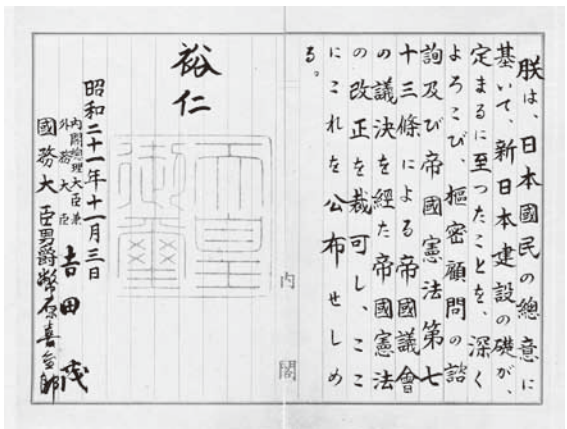 朕は、日本國民の總意に
基いて、新日本建設の礎が、
定まるに至つたことを、深く
よろこび、樞密顧問の諮
詢及び帝國憲法第七
十三條による帝國議會
の議決を經た帝國憲法
の改正を裁可し、ここ
にこれを公布せしめ
る。
裕仁
天皇
御璽
昭和二十一年十一月三日
內閣總理大臣兼
外務大臣
吉田茂
國務大臣男爵幣原喜重郎
内閣